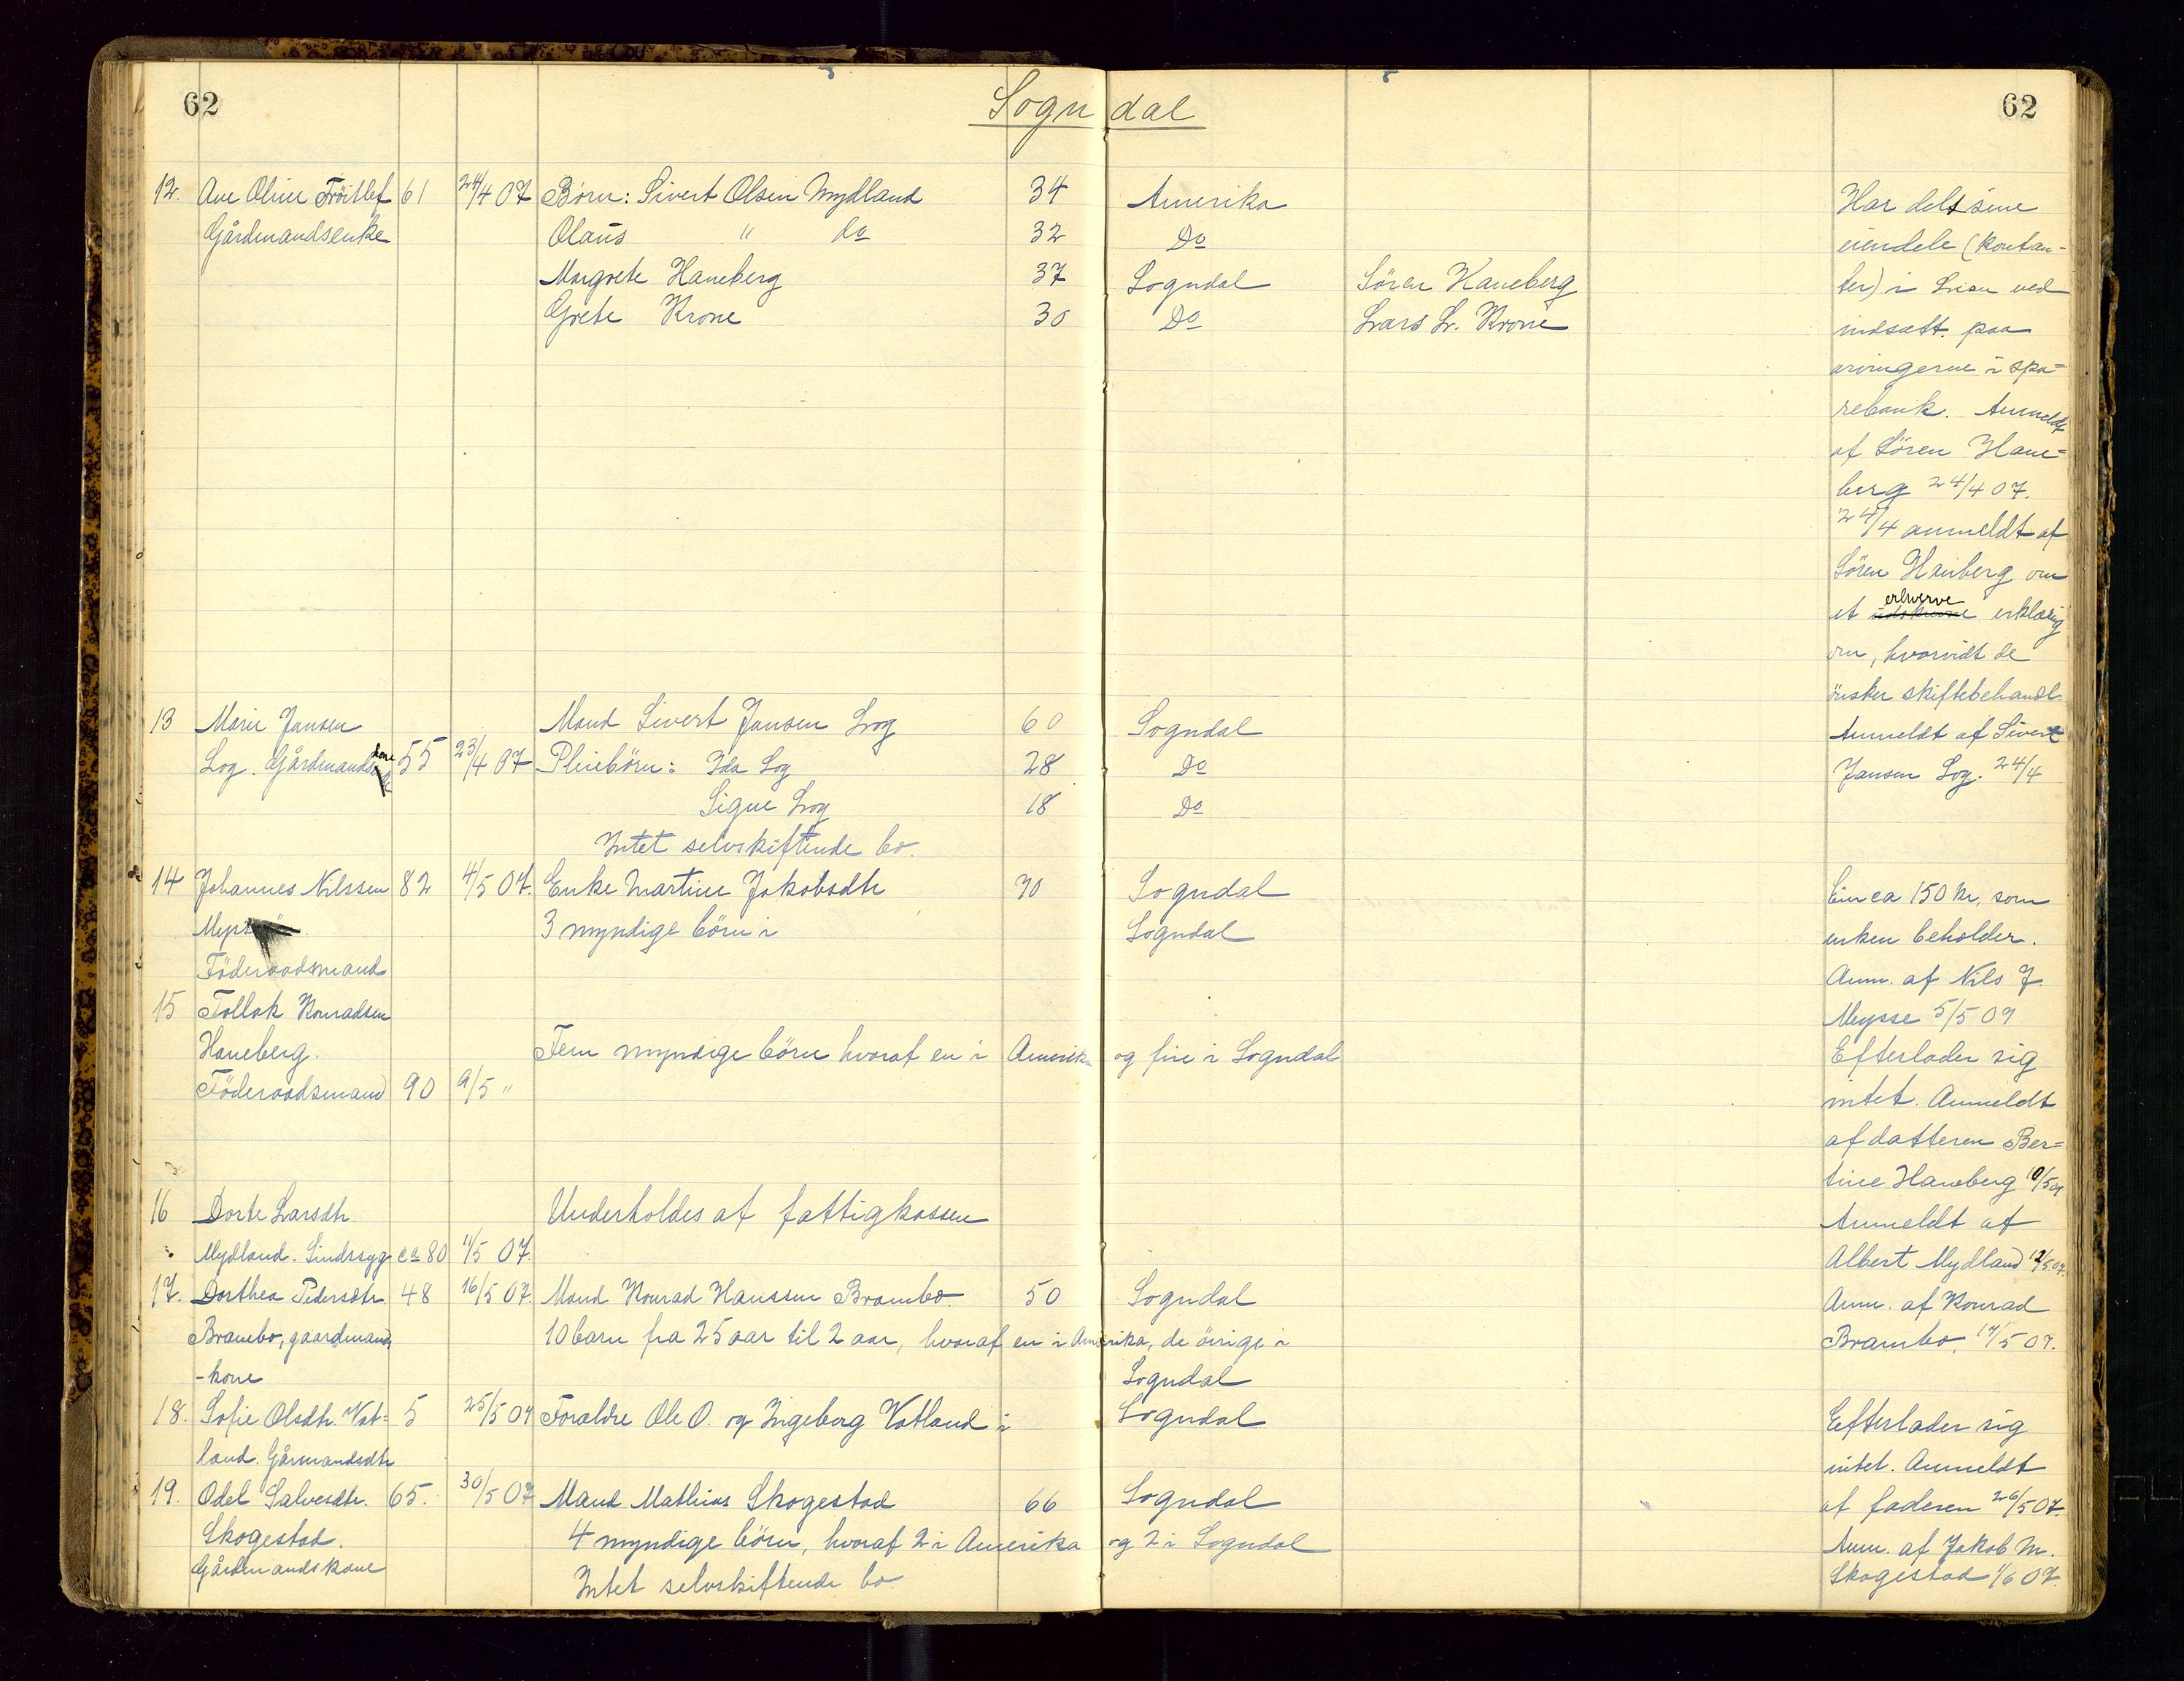 62
Sogndal
62
12. Ane Oline Fröitlef 61 24/4 07 Börn: Sivert Olsen Mydland 34 Amerika
Gårdmandsenke Olaus " do 32 Do
Margrete Haneberg 37 Sogndal Sören Haneberg
Grete Krone 30 Do Lars L. Krone
Har delt sine
eiendele (kontan-
ter) i Live ved
indsatt. paa
arvingerne i spa-
rebank. Anmeldt
af Sören Hane-
berg 24/4 07.
24/4 anmeldt af
Sören Haneberg om
at erhverve erklæring
om, hvorvidt de
önsker skiftebehandl.
13 Marie Jansen Mand Sivert Jansen Log 60 Sogndal
Log. Gårdmandskone 55 23/4 07 Pleiebörn: Ida Log 28 Do
Signe Log 18 Do
Intet selvskiftende bo.
Anmeldt af Sivert
Jansen Log. 24/4
14 Johannes Nilssen 82 4/5 07. Enke Martine Jakobsdtr 70 Sogndal
Myss 3 myndige börn i Sogndal
Föderaadsmand
Eier ca 150 kr, som
enken beholder.
Anm. af Nils J.
Mysse 5/5 07
15 Tollak Konradsen
Haneberg. Fem myndige börn hvoraf en i Amerika og fire i Sogndal
Föderaadsmand 90 9/5 "
Efterlader sig
intet. Anmeldt
af datteren Ber-
tine Haneberg 10/5 07
16 Dorte Larsdtr. Underholdes af fattigkassen
Mydland. Sindssyg ca 80 11/5 07.
Anmeldt af
Albert Mydland 12/5 07.
17. Dorthea Pedersdtr. 48 16/5 07. Mand Konrad Hanssen Brambo. 50 Sogndal
Brambo, gaardmands 10 barn fra 25 aar til 2 aar, hvoraf en i Amerika, de övrige i
-kone Sogndal
Anm. af Konrad
Brambo. 17/5 07.
18. Sofie Olsdtr. Vat- 5 25/5 07 Foraldre Ole O. og Ingeborg Vatland i Sogndal
land. Gårmandsdtr
Efterlader sig
intet. Anmeldt
af faderen 26/5 07.
19. Odel Salvesdtr. 65. 30/5 07 Mand Mathias Skogestad 66 Sogndal
Skogestad. 4 myndige börn, hvoraf 2 i Amerika og 2 i Sogndal
Gårdmandskone Intet selvskiftende bo.
Anm. af Jakob M.
Skogestad 1/6 07.